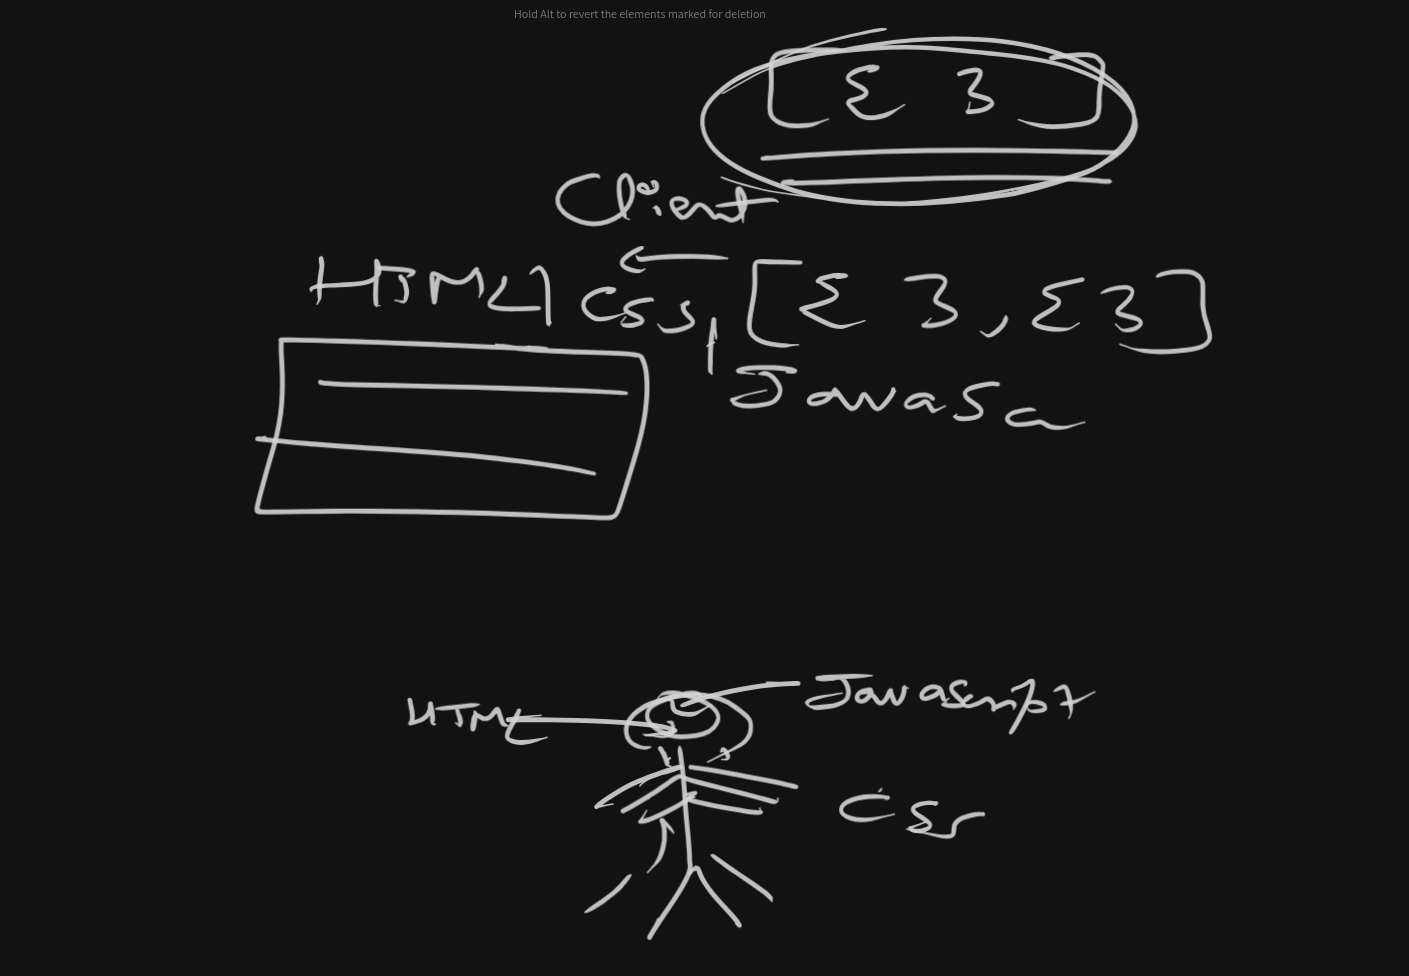 Hold Alt to revert the elements marked for deletion
[ { } ]
Client
HTML, CSS, [ { }, { } ]
JavaSc
HTML
JavaScript
CSS